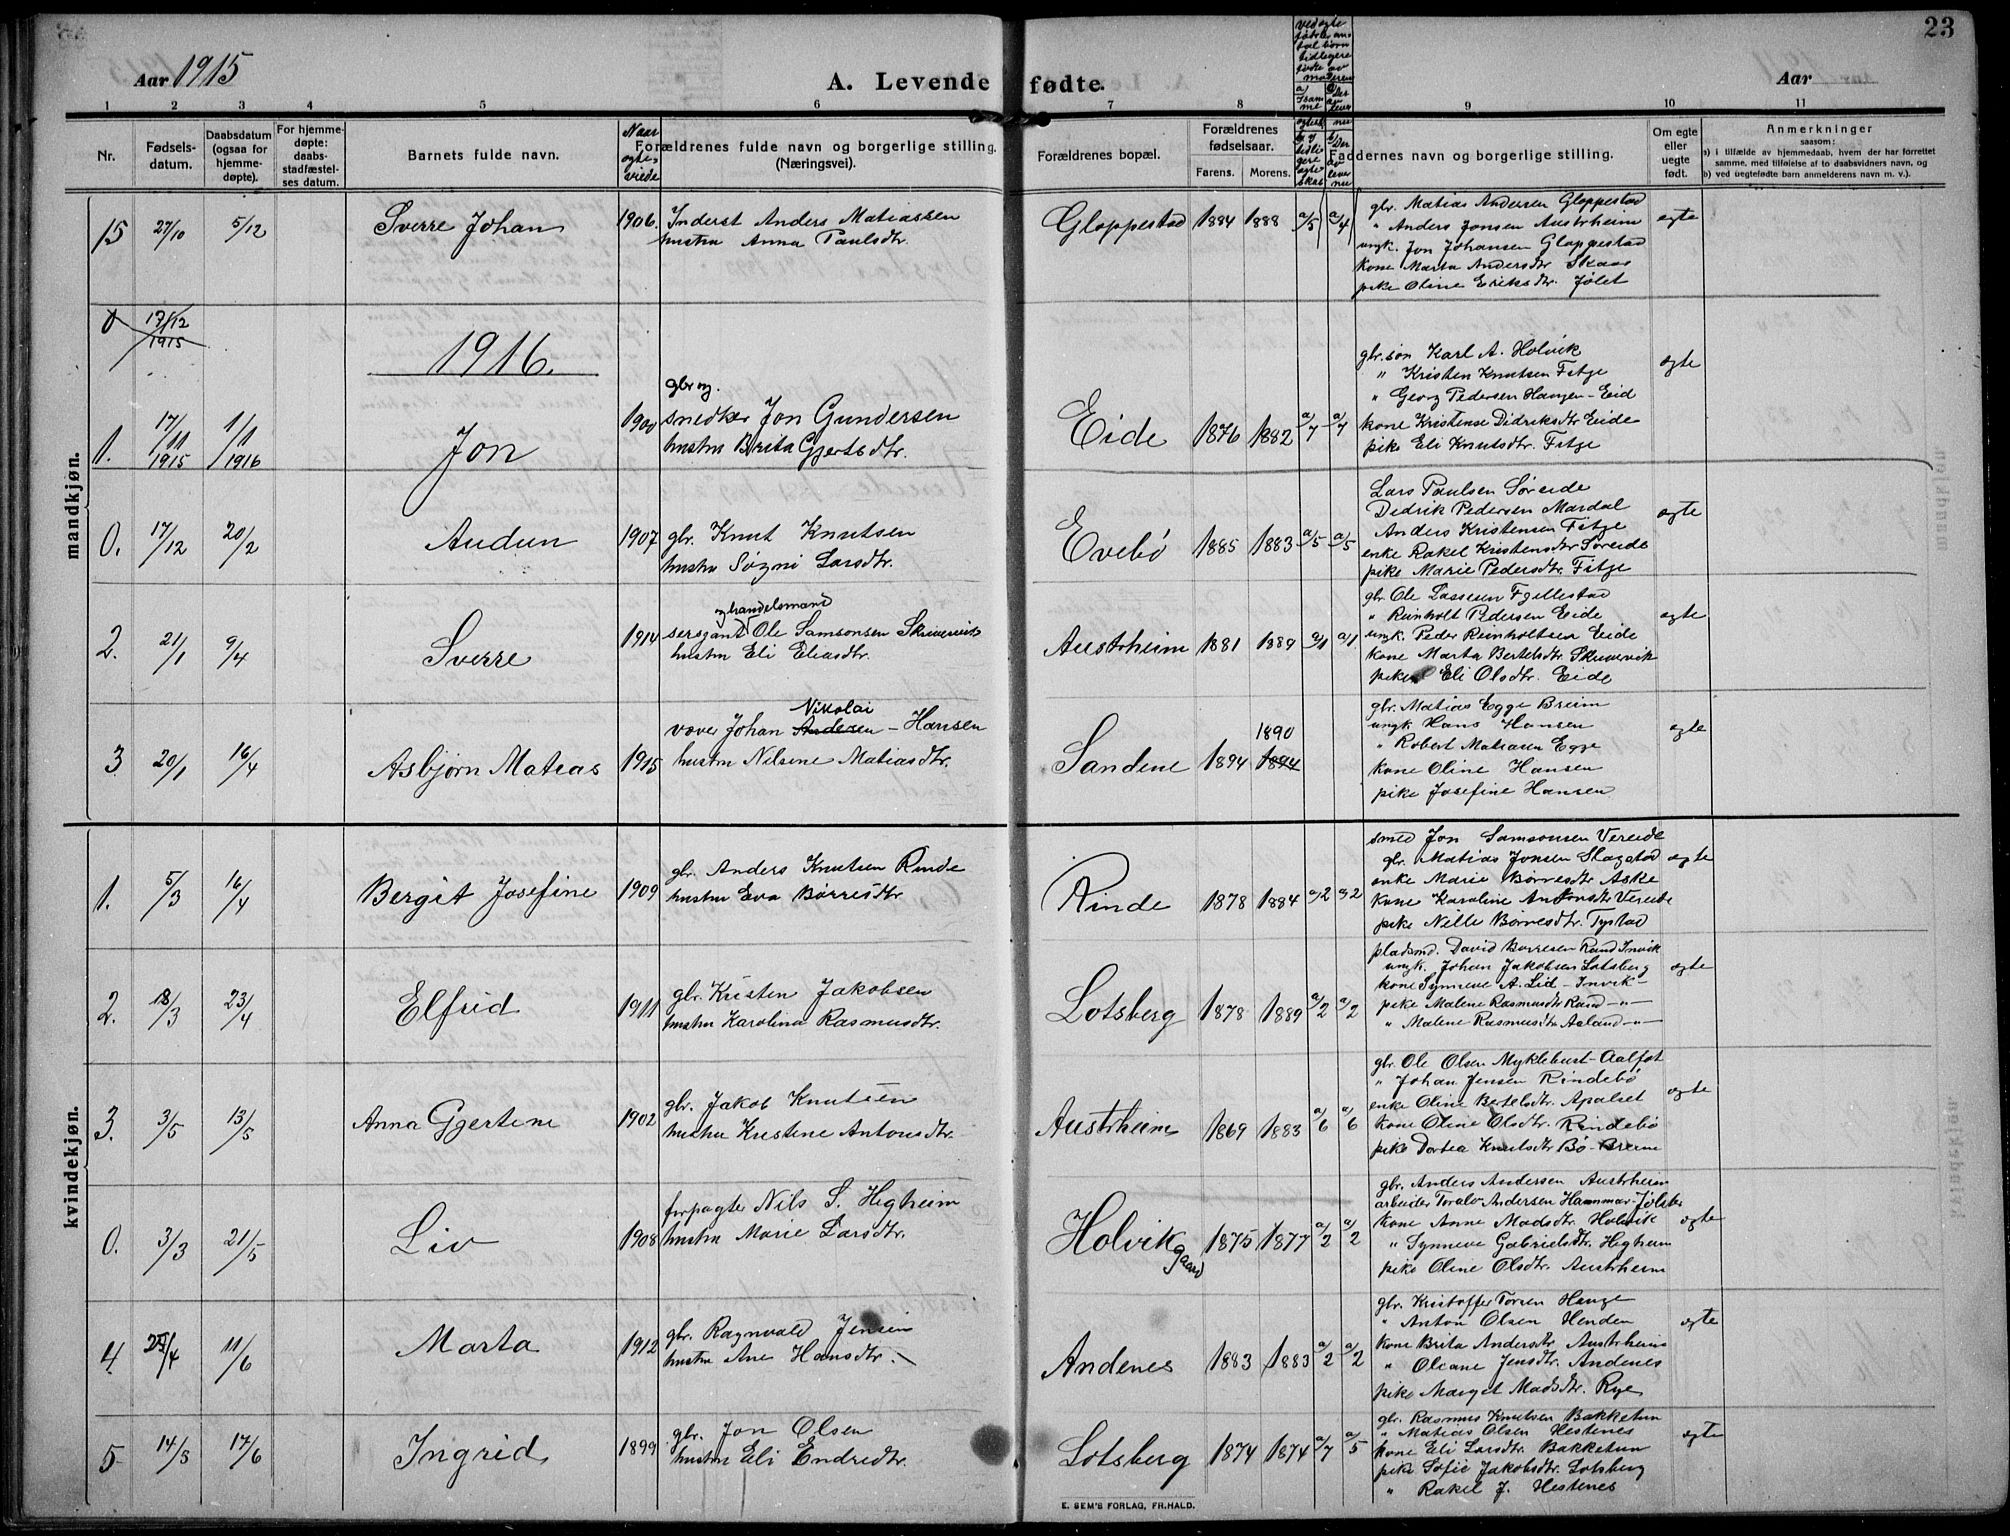 23
Aar 1915
A. Levende fødte.
Aar
1 2 3 4 5 6 7 8 9 10 11
Nr.
Fødsels-
datum.
Daabsdatum
(ogsaa for
hjemme-
døpte).
For hjemme-
døpte:
daabs-
stadfæstel-
ses datum.
Barnets fulde navn.
Naar
egte-
viede
Forældrenes fulde navn og borgerlige stilling.
(Næringsvei).
Forældrenes bopæl.
Forældrenes
fødselsaar.
Farens. Morens.
ved egte
født er an-
tal børn
tidligere
fødte av
moderen
Faddernes navn og borgerlige stilling.
Om egte
eller
uegte
født.
Anmerkninger
saasom:
a) i tilfælde av hjemmedaab, hvem der har forrettet
samme, med tilføielse af to daabsvidners navn, og
b) ved uegtefødte barn anmelderens navn m. v.).
mandkjøn.
15 27/10 5/12 Sverre Johan 1906. Inderst Anders Matiassen
hustru Anna Paulsdtr.
Gloppestad 1884 1888 a/5 a/4
gbr. Matias Andersen Gloppestad
" Anders Jonsen Austrheim
ungk. Jon Johansen Gloppestad
kone Marta Andersdtr Skaar
pike Oline Eriksdtr. Jølet
egte
0 17/12
1915
1916.
1. 17/11 1915 1/1 1916 Jon 1900 gbr og
snedker Jon Gundersen
hustru Brita Gjertsdtr.
Eide 1876 1882 a/7 a/7
gbr. søn Karl A. Holvik
" Kristen Knutsen Fitje
" Georg Pedersen Haugen - Eid
kone Kristense Didriksdtr Eide
pike Eli Knutsdtr. Fitje
egte
0. 17/12 20/2 Audun 1907 gbr. Knut Knutsen
hustru Søgni Larsdtr.
Evebø 1885 1883 a/5 a/5
Lars Paulsen Søreide
Didrik Pedersen Mardal
Anders Kristensen Fitje
enke Rakel Kristensdtr Søreide
pike Marie Pedersdtr. Fitje
egte
2. 21/1 9/4 Sverre 1914 og handelsmand
sersjant Ole Samsonsen Skrivervik
hustru Eli Eliasdtr.
Austrheim 1881 1889 a/1 a/1
gbr. Ole Lassesen Fjellestad
" Reinholt Pedersen Eide
ungk. Peder Reinholtsen Eide
kone Marta Bertelsdtr. Skrivervik
pike Eli Olsdtr. Eide
egte
3 20/1 16/4 Asbjørn Matias 1915 Nikolai
væver Johan Andersen - Hansen
hustru Nilsine Matiasdtr.
Sandene 1894 1890
1894
gbr. Matias Egge Breim
ungk Hans Hansen
" Robert Matiasen Egge
kone Oline Hansen
pike Josefine Hansen
egte
kvindekjøn.
1. 5/3 16/4 Bergit Josefine 1909 gbr. Anders Knutsen Rinde
hustru Eva Børresdtr
Rinde 1878 1884 a/2 a/2
smed Jon Samsonsen Vereide
gbr. Matias Jonsen Slagstad
enke Marie Børresdtr Aske
kone Karoline Antonsdtr Vereide
pike Nille Børresdtr. Tystad
egte
2. 18/3 23/4 Elfrid 1911 gbr. Kristen Jakobsen
hustru Karolina Rasmusdtr.
Lotsberg 1878 1889 a/2 a/2
pladsmd. David Børresen Rand Invik
ungk. Johan Jakobsen Lotsberg
kone Synneve A. Lid - Invik -
pike Malene Rasmusdtr Rand - " -
" Malene Rasmusdtr Aaland - " -
egte
3. 3/5 13/5 Anna Gjertine 1902 gbr. Jakob Knutsen
hustru Kristine Antonsdtr.
Austrheim 1869 1883 a/6 a/6
gbr. Ole Olsen Myklebust - Aalfot
" Johan Jensen Rindebø
enke Oline Bertelsdtr. Apalset
kone Oline Olsdtr. Rindebø
pike Dortea Knutsdtr Bø - Breim
egte
0. 3/3 21/5 Liv 1908 forpagter Nils S. Hegheim
hustru Marie Larsdtr.
Holvik
gaard 1875 1877 a/2 a/2
gbr. Anders Andersen Austrheim
arbeider Toralv Andersen Hammar - Jølster
kone Anne Madsdtr. Holvik
" Synneve Gabrielsdtr. Hegheim
pike Oline Olsdtr. Austrheim
egte
4 /4 11/6 Marta 1912 gbr. Ragnvald Jensen
hustru Ane Hansdtr.
Andenes 1883 1883 a/2 a/2
gbr. Kristoffer Torsen Hauge
" Anton Olsen Henden
kone Brita Andersdtr Austrheim
" Oleane Jensdtr. Andenes
pike Marget Madsdtr. Rye
egte
5 14/5 17/6 Ingrid 1899 gbr. Jon Olsen
hustru Eli Endredtr.
Lotsberg 1874 1874 a/7 a/5
gbr. Rasmus Knutsen Bakketun
" Matias Olsen Hestenes
kone Eli Larsdtr. Bakketun
pike Sofie Jakobsdtr. Lotsberg
" Rakel J. Hestenes
egte
E. SEM'S FORLAG, FR.HALD.